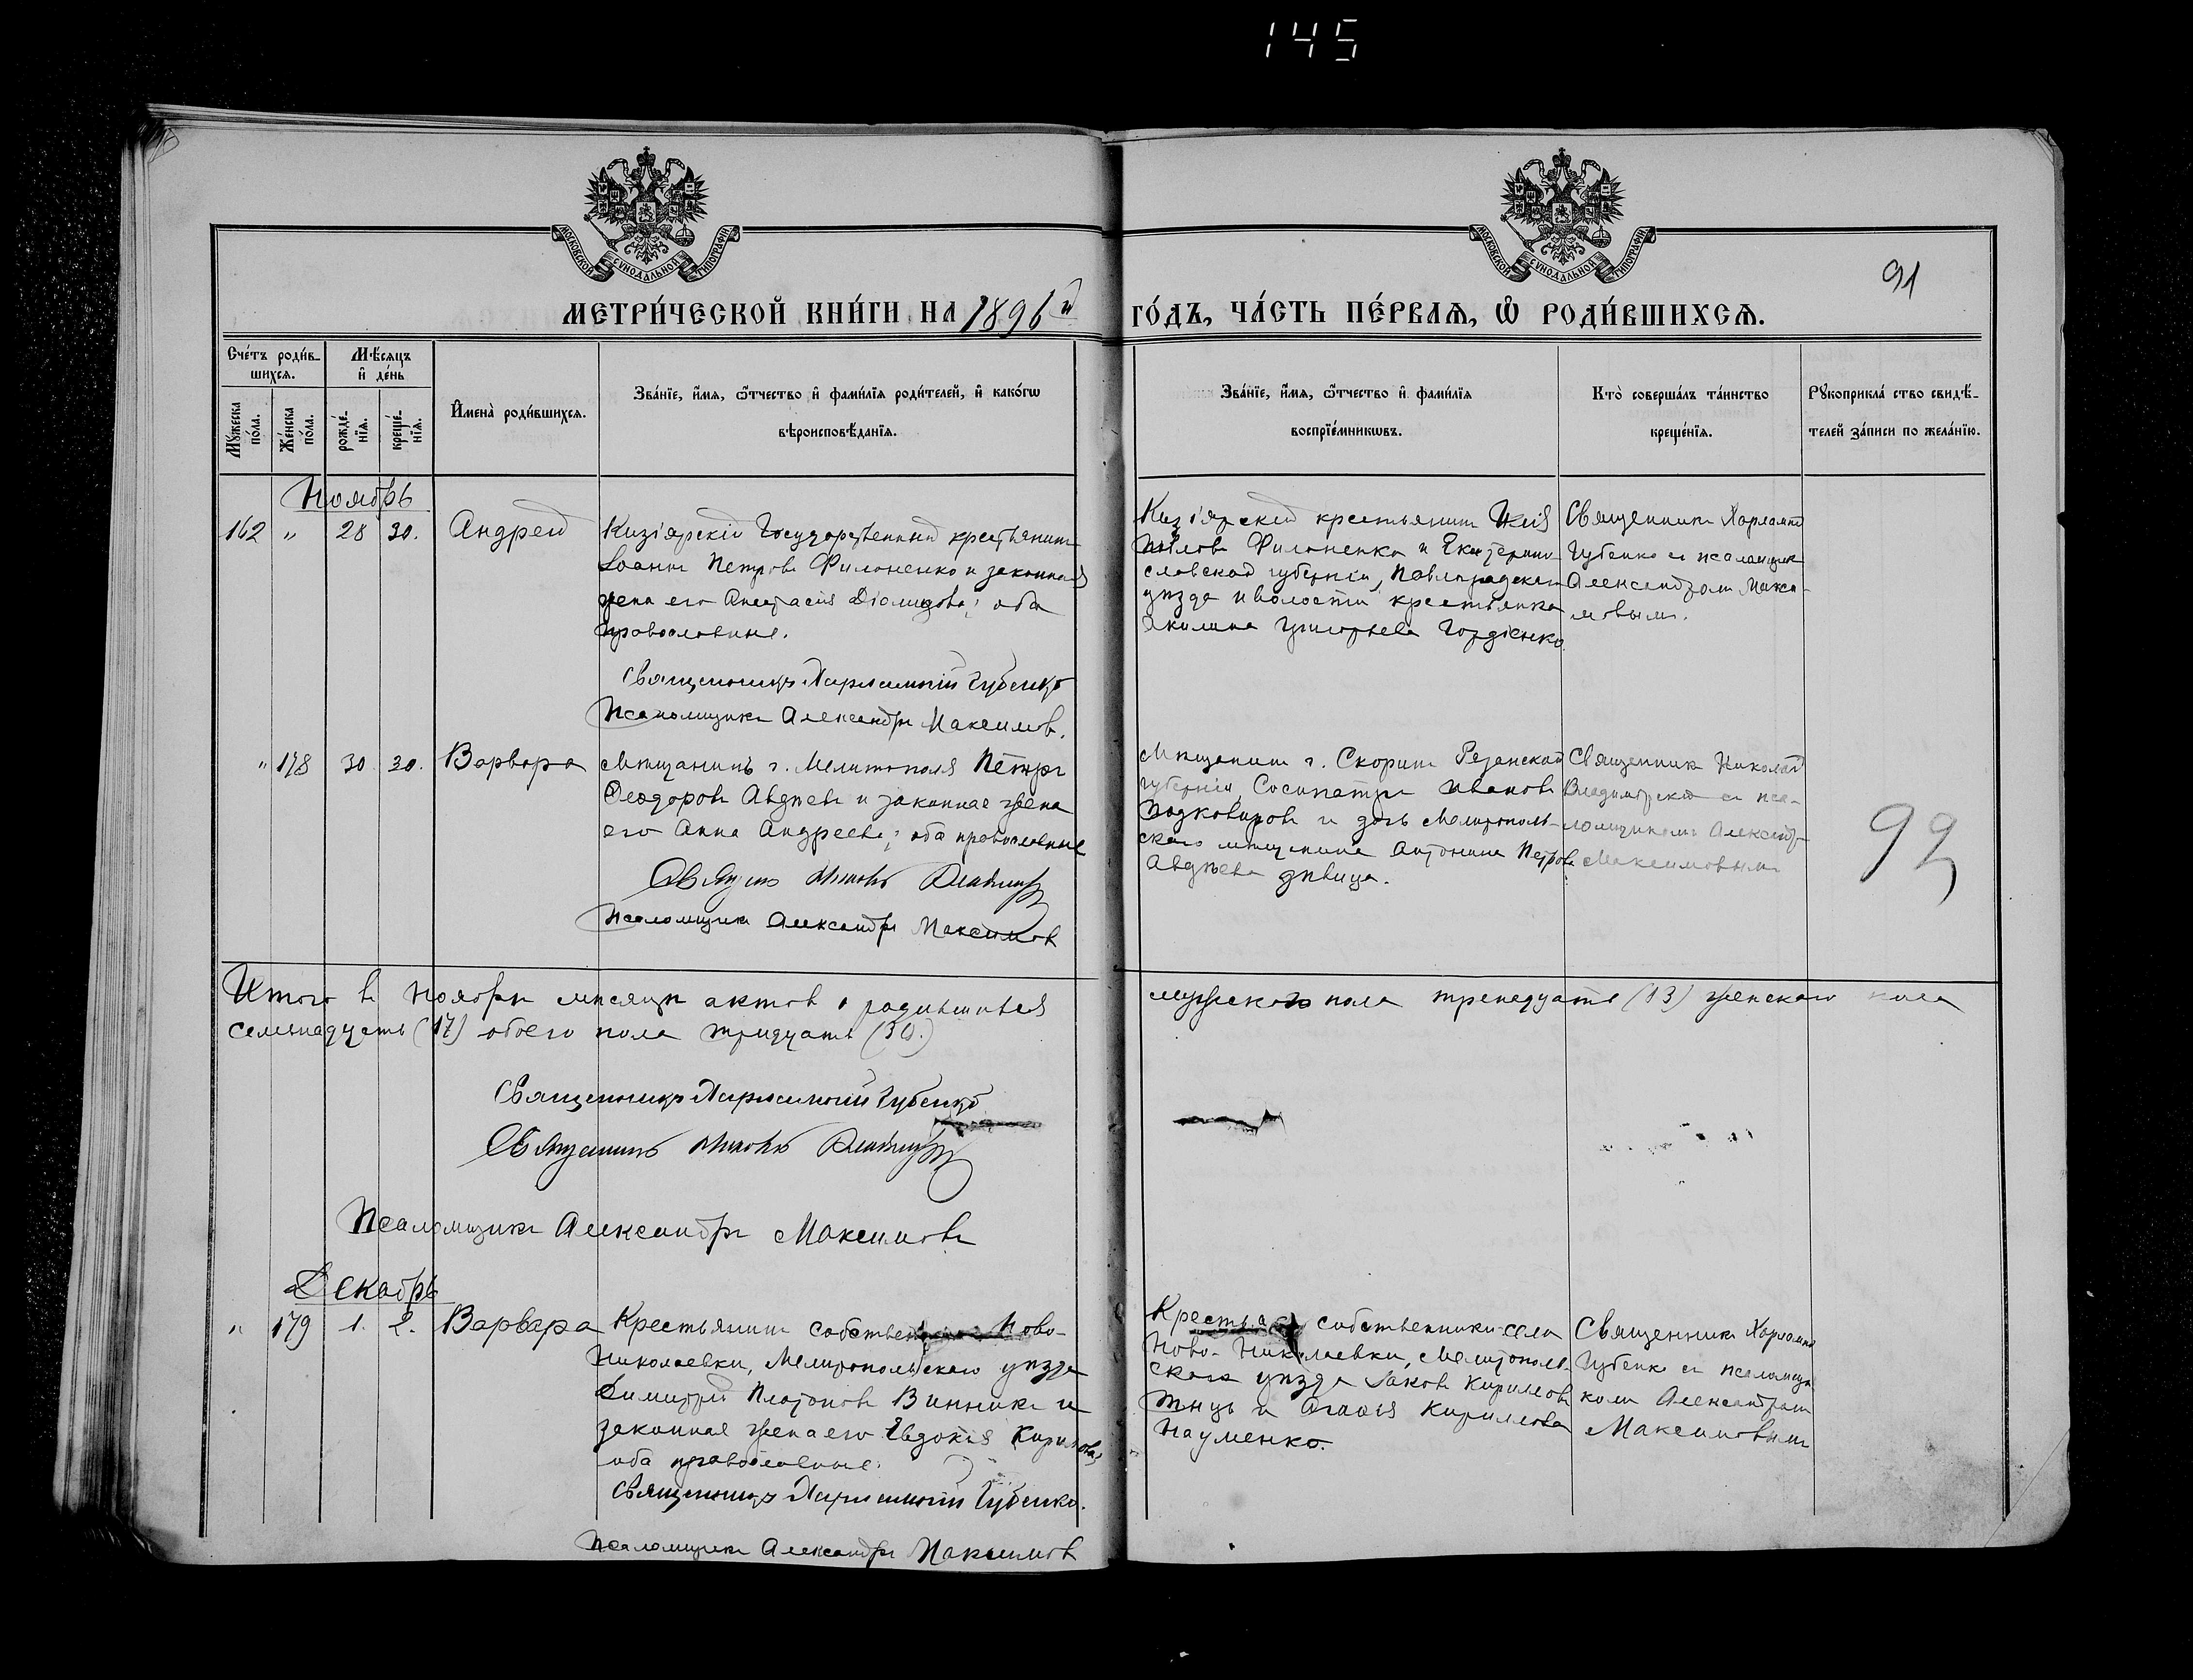 145
МОСКОВСКОЙ СѴНОДАЛЬНОЙ ТИПОГРАФІИ
МОСКОВСКОЙ СѴНОДАЛЬНОЙ ТИПОГРАФІИ
91
МЕТРИ́ЧЕСКОЙ КНИ́ГИ НА 1896й ГО́ДЪ, ЧА́СТЬ ПЕ́РВАЯ, Ѡ РОДИ́ВШИХСЯ.
Сче́тъ роди́в-
шихся.
Мꙋ́жеска по́ла.
Же́нска по́ла.
Мѣ́сяцъ и де́нь
рожде́-нїя.
креще́-нїя.
Имена̀ роди́вшихся.
Зва́нїе, и́мя, ѻ҆́тчество и фами́лїя роди́телей, и како́гѡ
вѣроисповѣ́данїя.
Зва́нїе, и́мя, ѻ҆́тчество и фами́лїя
воспрїе́мникѡвъ.
Кто̀ соверша́лъ та́инство
креще́нїя.
Рꙋкоприкла́ ство свидѣ́-
телей за́писи по жела́нїю.
Ноябрь
162 " 28 30. Андрей
Кизіярскій Государственный крестьянинъ
Іоаннъ Петровъ Филоненко и законная
жена его Анастасія Діомидова; оба
православные.
Священникъ Харлампій Губенко
Псаломщикъ Александръ Максимовъ.
Кизіярский крестьянинъ
Филоненко и Екатерино-
славской губерніи, Павлоградскаго
уѣзда и волости крестьянка
Акилина Григорьева Гордіенко.
Священникъ Харлампій
Губенко съ псаломщик
Александромъ Макси-
мовымъ.
" 178 30 30. Варвара
Мѣщанинъ г. Мелитополя Петръ
Феодоровъ Авдѣевъ и законная жена
его Анна Андреева; оба православные
Псаломщикъ Александръ Максимовъ
Мѣщанинъ г. Скопинъ Рязанской
губерніи Сосипатръ Ивановъ
Подковыровъ и дочь Мелитополь-
скаго мѣщанина Антонина Петрова
Авдѣева дѣвица.
Священникъ Николай
Владимірскій съ пса-
ломщикомъ Александр
Максимовымъ
92
Итого въ Ноябрѣ мѣсяцѣ актовъ о родившихся мужескаго пола тринадцать (13) женскаго пола
семнадцать (17) обоего пола тридцать (30.)
Священникъ Харлампій Губенко
Псаломщикъ Александръ Максимовъ
Декабрь
" 179 1. 2. Варвара
Крестьянинъ Ново-
Николаевки, Мелитопольскаго уѣзда
Димитрій Платоновъ Винникъ и
законная жена его Евдокія Кирилова,
оба православные.
Священникъ Харлампій Губенко.
Псаломщикъ Александръ Максимовъ
собственники села
Ново-Николаевки, Мелитополь-
скаго уѣзда Іаковъ Кириловъ
и Агафія Кирилова
Науменко.
Священникъ Харлампій
Губенко съ псаломщи
комъ Александромъ
Максимовымъ